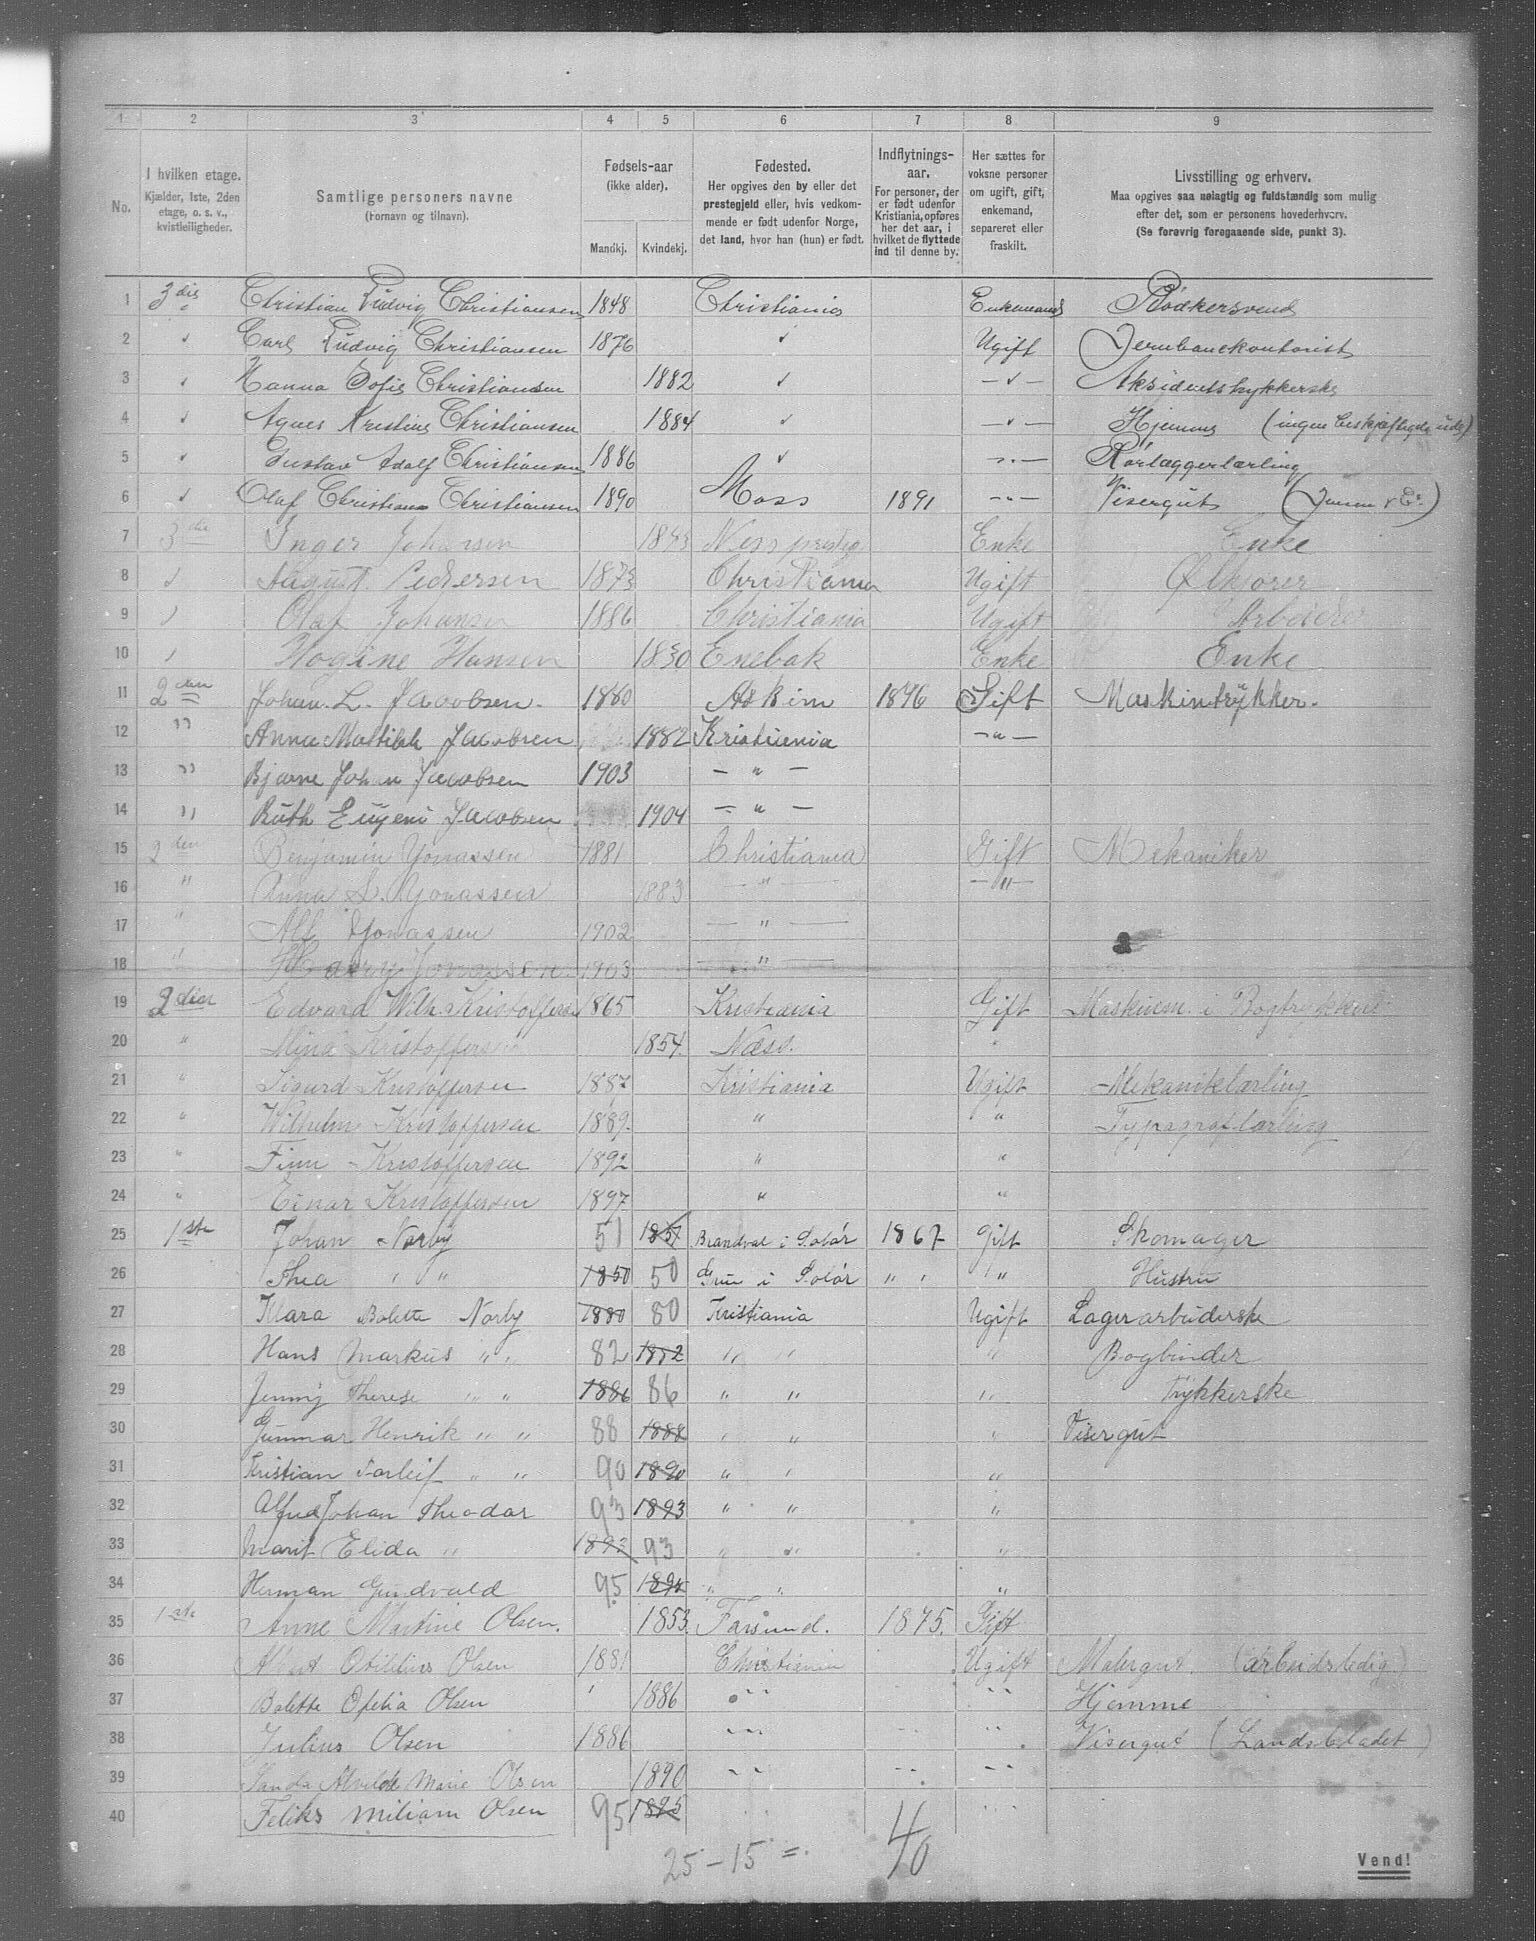 1 2 3 4 5 6 7 8 9
No.
I hvilken etage.
Kjælder, 1ste, 2den
etage, o. s. v.,
kvistleiligheder.
Samtlige personers navne
(Fornavn og tilnavn).
Fødsels-aar
(ikke alder).
Mandkj. Kvindekj.
Fødested.
Her opgives den by eller det
prestegjeld eller, hvis vedkom-
mende er født udenfor Norge,
det land, hvor han (hun) er født.
Indflytnings-
aar.
For personer, der
er født udenfor
Kristiania, opføres
her det aar, i
hvilket de flyttede
ind til denne by.
Her sættes for
voksne personer
om ugift, gift,
enkemand,
separeret eller
fraskilt.
Livsstilling og erhverv.
Maa opgives saa nøiagtig og fuldstændig som mulig
efter det, som er personens hovederhverv.
(Se forøvrig foregaaende side, punkt 3).
1 3die Christian Ludvig Christiansen 1848 Christiania Enkemand Bødkersvend
2 " Carl Ludvig Christiansen 1876 " Ugift Jernbanekontorist
3 " Hanna Sofie Christiansen 1882 " — " — Aksidentstrykkerske
4 " Agnes Kristine Christiansen 1884 " — " — Hjemme (ingen beskjæftigelse ude)
5 " Gustav Adolf Christiansen 1886 " — " — Rørlæggerlærling
6 " Olaf Christian Christiansen 1890 Moss 1891 — " — Visergut (Jensen & Co)
7 3die Inger Johansen Ness prestg Enke Enke
8 " August Pedersen 1873 Christiania Ugift Ølkjører
9 " Olaf Johansen 1886 Christiania Ugift Arbeider
10 " Hogine Hansen 1830 Enebak Enke Enke
11 2den Johan. L. Jacobsen. 1880 Askim 1896 Gift Maskintrykker.
12 " Anna Mathilde Jacobsen 1882 Kristiania — " —
13 " Bjarne Johan Jacobsen 1903 — " —
14 " Ruth Eugeni Jacobsen 1904 — " —
15 2den Benjamin Jonassen 1881 Christiania Gift Mekaniker
16 " Anna L. Jonassen 1883 — " — — " —
17 " Alf Jonassen 1902 — " —
18 " Harry Jonassen 1903 — " —
19 2den Edvard Wilh. Kristoffersen 1865 Kristiania Gift Maskinm. i Bogtrykkeri
20 " Mina Kristoffersen 1854. Næss. "
21 " Sigurd Kristoffersen 1887 Kristiania Ugift Mekanikerlærling
22 " Wilhelm Kristoffersen 1889. " " Typograflærling
23 " Finn Kristoffersen 1892 " "
24 " Einar Kristoffersen 1897. " "
25 1ste Johan Norby 51 1851 Brandval i Solør 1867 Gift Skomager
26 Thea " " 1850 50 Grue i Solør " " " Hustru
27 Klara Bolette Norby 1880 80 Kristiania Ugift Lagerarbeiderske
28 Hans Markus " " 82 1882 " " " Bogbinder
29 Jenny Therese " " 1886 86 " " " Trykkerske
30 Gunnar Henrik " " 88 1888 " " " Visergut
31 Kristian Torleif " " 90 1890 " " "
32 Alfred Johan Theodor 93 1893 " " "
33 Marit Elida " 1893 93 " " "
34 Herman Gundvald 95 1895 " " "
35 1ste Anne Martine Olsen. 1853. Farsund. 1875. Gift
36 Olsen 1881 Christiania Ugift Malergut. (arbeidsledig)
37 Bolette Ofelia Olsen 1886 " " " Hjemme
38 Julius Olsen 1886 " " " Visergut (Landsbladet)
39 Alvilde Marie Olsen 1890 " " "
40 Feliks Miliam Olsen 95 1895 " " "
25 – 15 = 40
Vend!